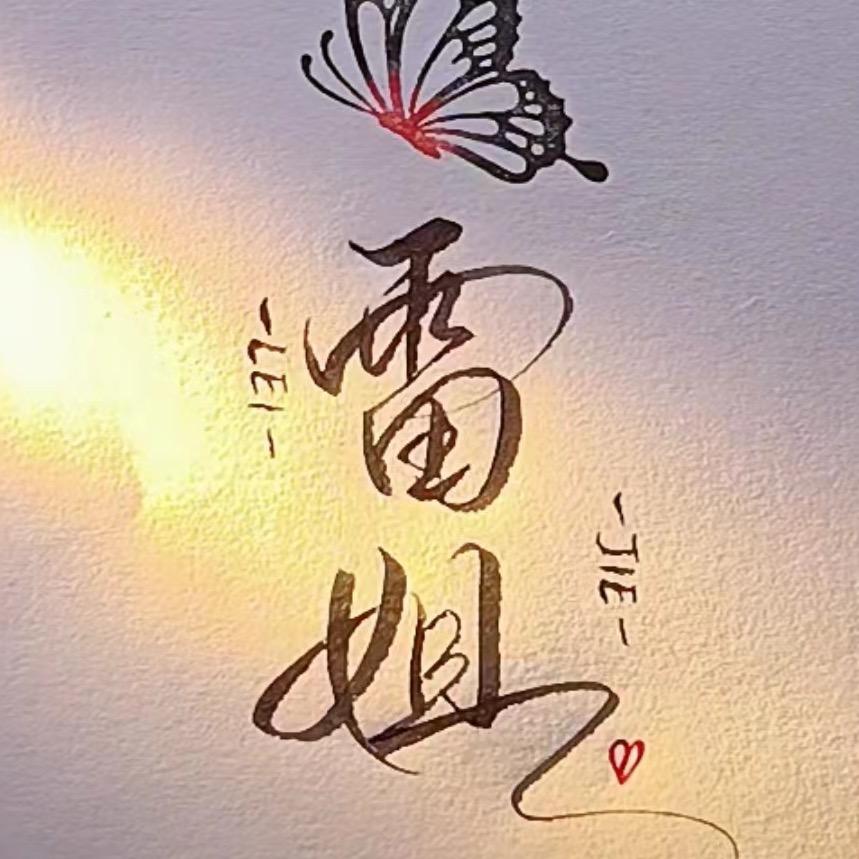 雷
-LEI-
姐
-JIE-